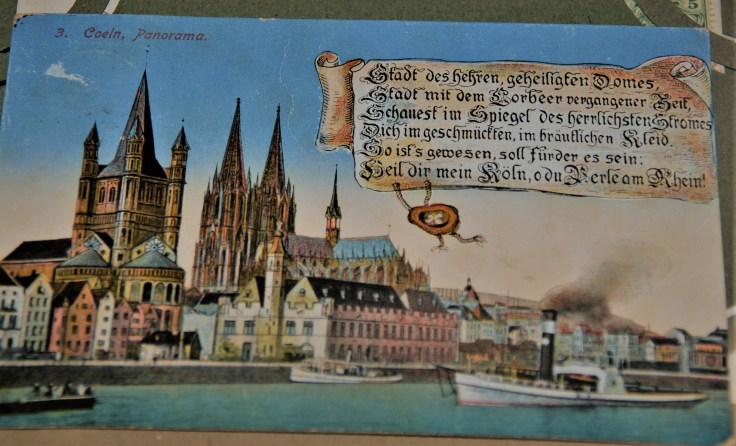 3. Coeln, Panorama.
Stadt des hehren, geheiligten Domes,
Stadt mit dem Lorbeer vergangener Zeit,
Schauest im Spiegel des herrlichsten Stromes
Dich im geschmückten, im bräutlichen Kleid.
So ist's gewesen, soll fürder es sein:
Heil dir mein Köln, o du Perle am Rhein!